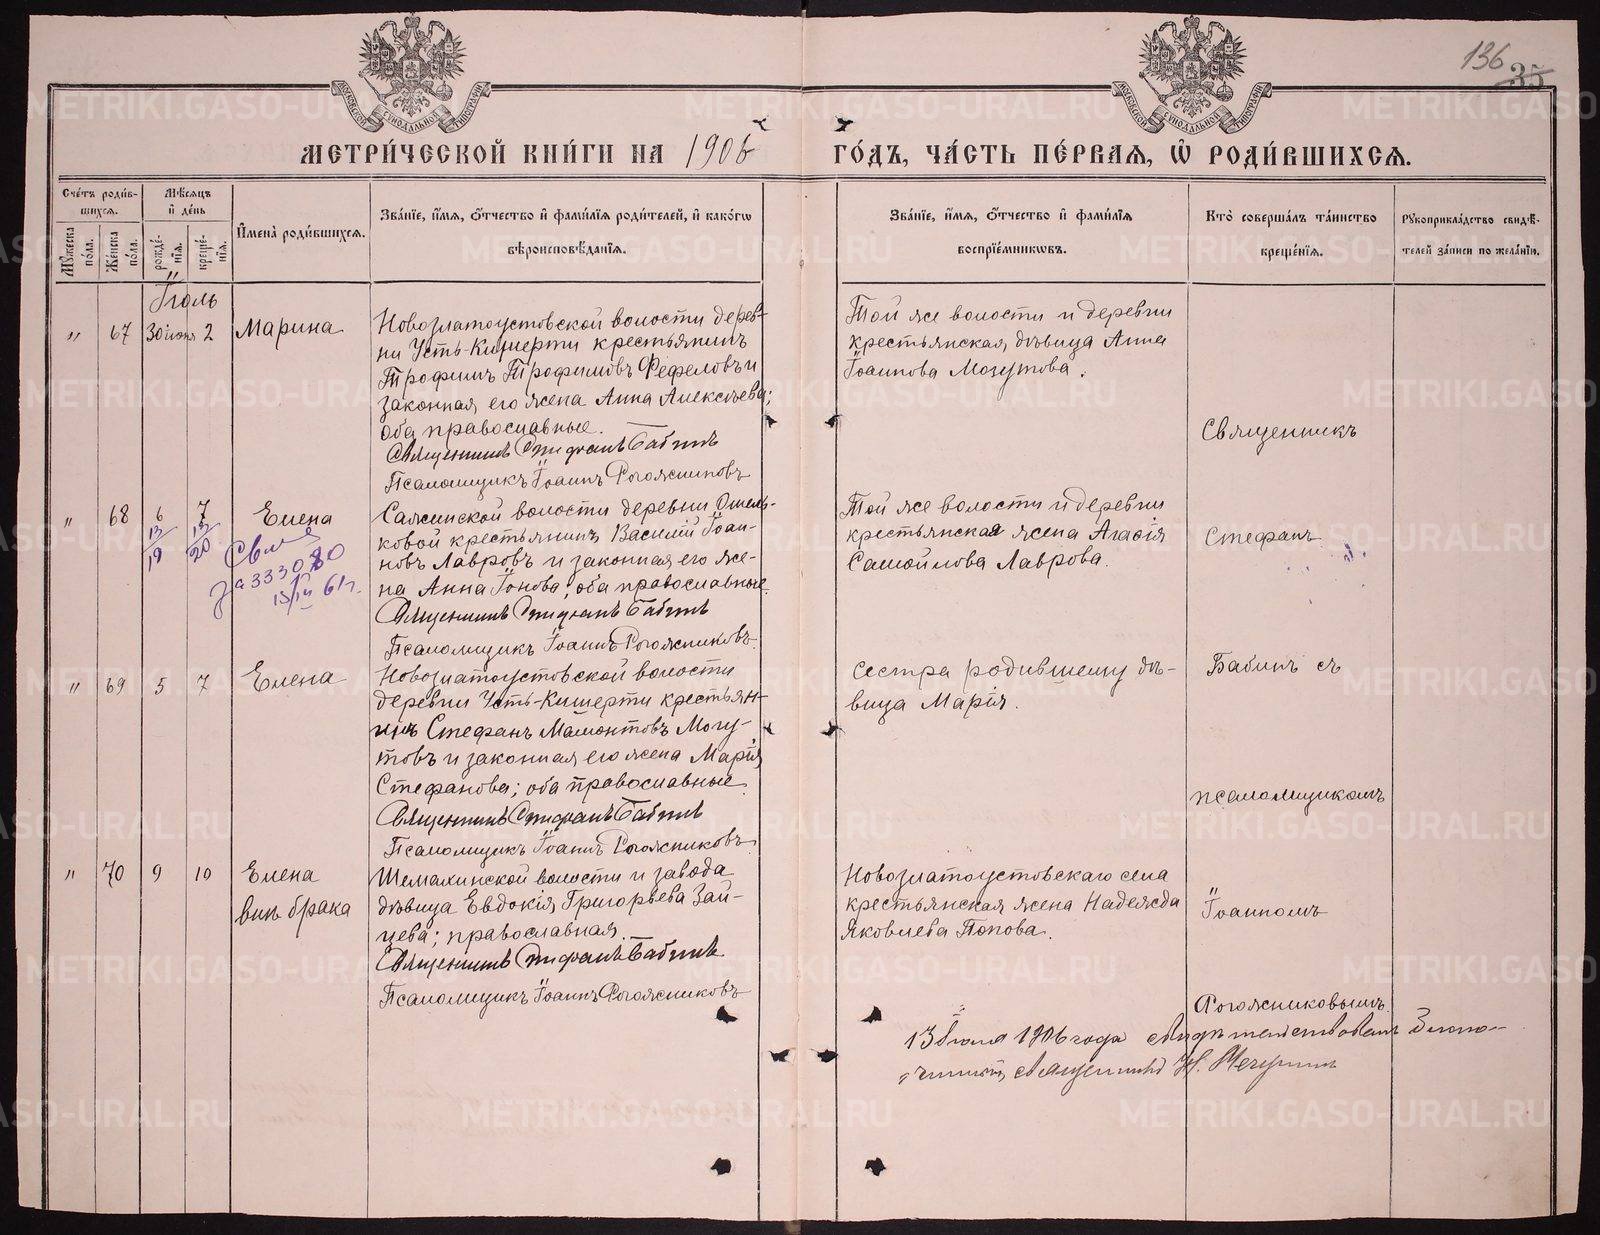 136
35
МЕТРИ́ЧЕСКОЙ КНИ́ГИ НА 1906
ГО́ДЪ, ЧА́СТЬ ПЕ́РВАЯ, Ѡ РОДИ́ВШИХСЯ.
Счетъ роди́вшихся.
Му́жеска по́ла.
Же́нска по́ла.
Мѣ́сяцъ и де́нь
рожде́нїя.
креще́нїя.
И҆мена̀ роди́вшихся.
Зва́нїе, и҆́мя, ѻ҆́тчество и҆ фами́лїя роди́телей, и҆ како́гѡ
вѣроисповѣ́данїя.
Зва́нїе, и҆́мя, ѻ҆́тчество и҆ фами́лїя
воспрїе́мникѡвъ.
Кто̀ соверша́лъ та́инство
креще́нїя.
Рꙋкоприкла́дство свидѣ́-
телей за́писи по жела́нїю.
Іюль
" 67 30 іюня 2 Марина
Новозлатоустовской волости дерев-
ни Усть-Кишерти крестьянинъ
Трофимъ Трофимовъ Фефеловъ и
законная его жена Анна Алексѣева;
оба православные.
Священникъ Стефанъ Бабинъ
Псаломщикъ Іоаннъ Рогожниковъ
Той же волости и деревни
крестьянская дѣвица Анна
Іоаннова Могутова.
Священникъ
" 68 6 7 Елена
13/19 13/20
за 333080
61 г.
Сажинской волости деревни Омель-
ковой крестьянинъ Василій Іоан-
новъ Лавровъ и законная его же-
на Анна Іонова; оба православные.
Священникъ Стефанъ Бабинъ
Псаломщикъ Іоаннъ Рогожниковъ
Той же волости и деревни
крестьянская жена Агафія
Самойлова Лаврова.
Стефанъ
" 69 5 7 Елена
Новозлатоустовской волости
деревни Усть-Кишерти крестьян-
инъ Стефанъ Мамонтовъ Могу-
товъ и законная его жена Марія
Стефанова; оба православные
Священникъ Стефанъ Бабинъ
Псаломщикъ Іоаннъ Рогожниковъ
Сестра родившему дѣ-
вица Марія.
Бабинъ съ
псаломщикомъ
" 70 9 10 Елена
внѣ брака
Шемахинской волости и завода
дѣвица Евдокія Григорьева Зай-
цева; православная.
Священникъ Стефанъ Бабинъ
Псаломщикъ Іоаннъ Рогожниковъ
Новозлатоустовскаго села
крестьянская жена Надежда
Яковлева Попова.
Іоанномъ
Рогожниковымъ
13 Іюля 1906 года свидѣтельствовалъ Благо-
чинный, священникъ Н.
METRIKI.GASO-URAL.RU